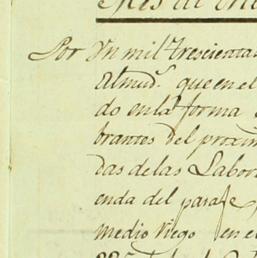 Mes de
Por Yn mil trescientas
Almud.s que en el
do en la forma
brantes del proxim
das de las Labor
enda del parage
medio riego en e